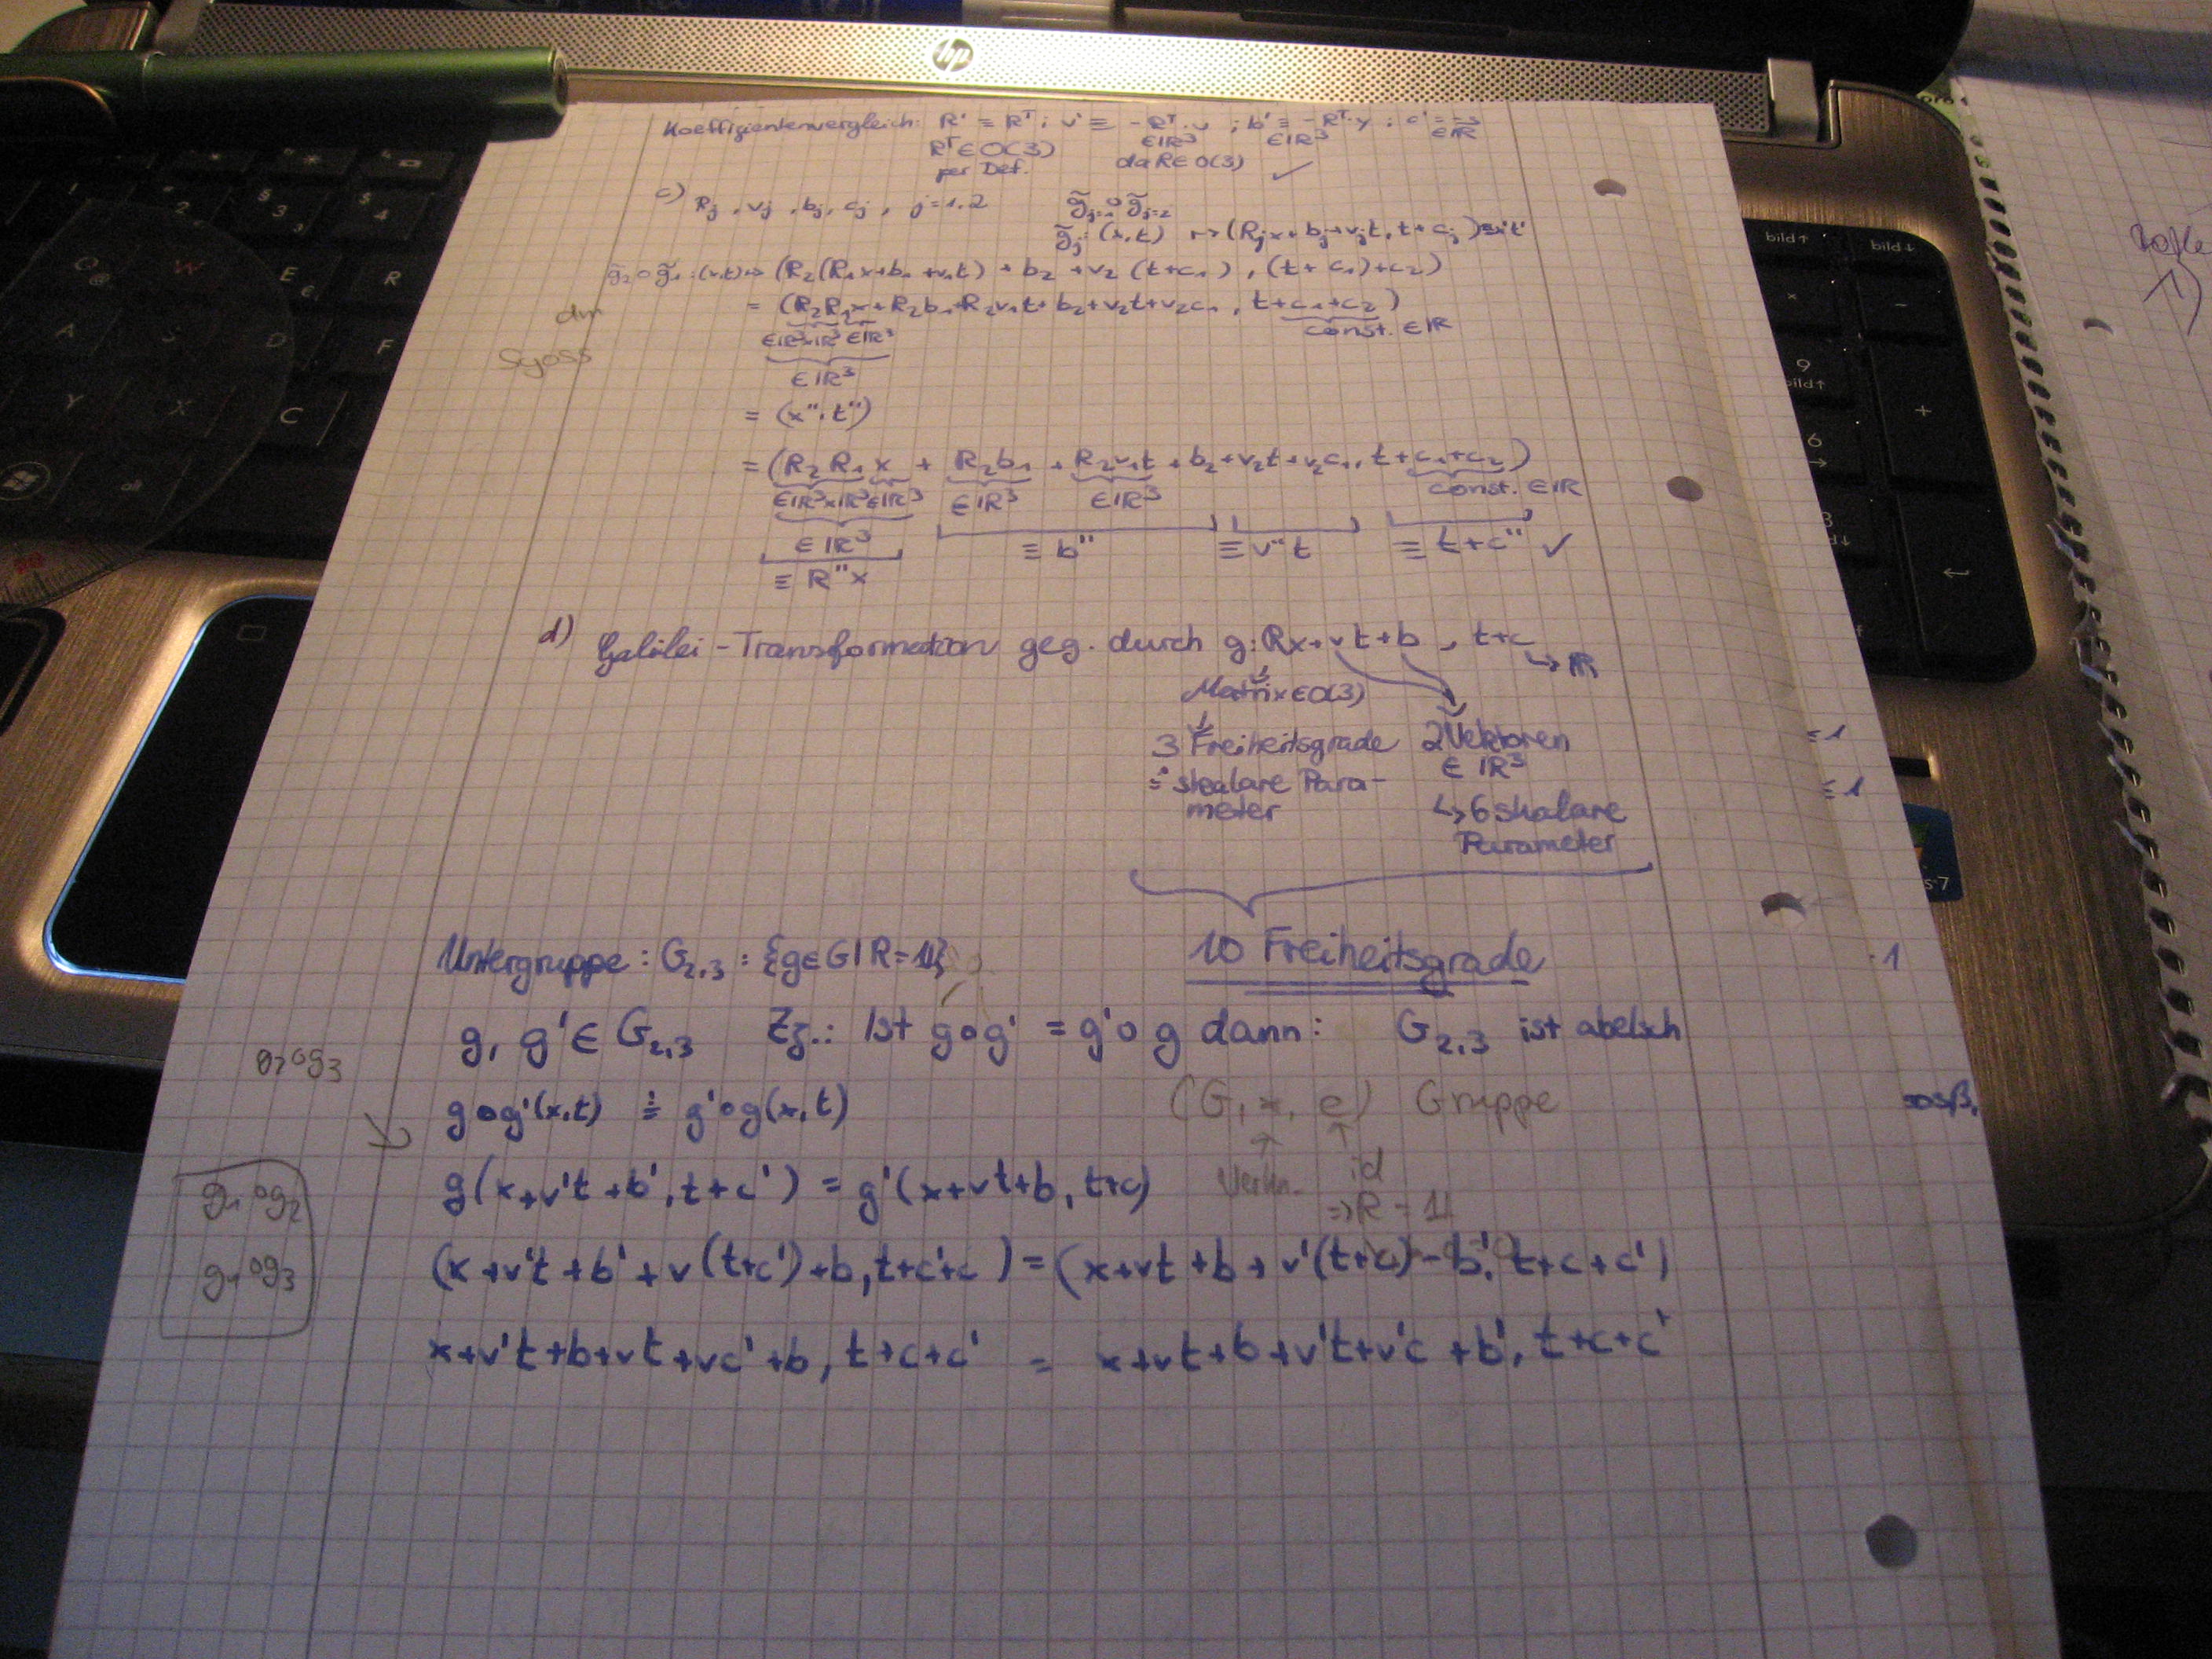 hp
Koeffizientenvergleich: R' ≡ R^T ; v' ≡ -R^T·v ; b' ≡ -R^T·y ; c' = -s
R^T ∈ O(3) ∈ℝ³ ∈ℝ³ ∈ℝ
per Def. da R ∈ O(3) ✓
c) Rj, vj, bj, cj, j=1,2 g̃j=1 ∘ g̃j=2
g̃j: (x,t) ↦ (Rjx + bj + vjt, t + cj) ≡ x't'
g̃2∘g̃1: (x,t) ↦ (R2(R1x+b1+v1t) + b2 + v2(t+c1), (t+c1)+c2)
= (R2R1x+R2b1+R2v1t+b2+v2t+v2c1, t+c1+c2)
∈ℝ³xℝ³ ∈ℝ³ const. ∈ℝ
∈ℝ³
= (x'', t'')
= (R2R1x + R2b1 + R2v1t + b2+v2t+v2c1, t+c1+c2)
∈ℝ³xℝ³ ∈ℝ³ ∈ℝ³ ∈ℝ³ const. ∈ℝ
∈ℝ³ ≡ b'' ≡ v''t ≡ t+c'' ✓
≡ R''x
d) Galilei-Transformation geg. durch g: Rx+vt+b, t+c
↳ ℝ
Matrix ∈ O(3)
3 Freiheitsgrade 2 Vektoren
∈ ℝ³
≙ skalare Para-
meter ↳ 6 skalare
Parameter
10 Freiheitsgrade
Untergruppe: G2,3: {g∈G | R=𝟙}
g, g' ∈ G2,3 Zz.: Ist g∘g' = g'∘g dann: G2,3 ist abelsch
g∘g'(x,t) ≟ g'∘g(x,t) (G, *, e) Gruppe
g(x+v't+b', t+c') = g'(x+vt+b, t+c) Verkn. id
⇒ R = 𝟙
(x+v't+b'+v(t+c')+b, t+c'+c) = (x+vt+b+v'(t+c)-b', t+c+c')
x+v't+b+vt+vc'+b, t+c+c' = x+vt+b+v't+v'c+b', t+c+c'
g2∘g3
g1∘g2
g1∘g3
≤ 1
-1
bild↑
bild↓
9
bild↑
6
E
R
A
S
D
F
Y
X
C